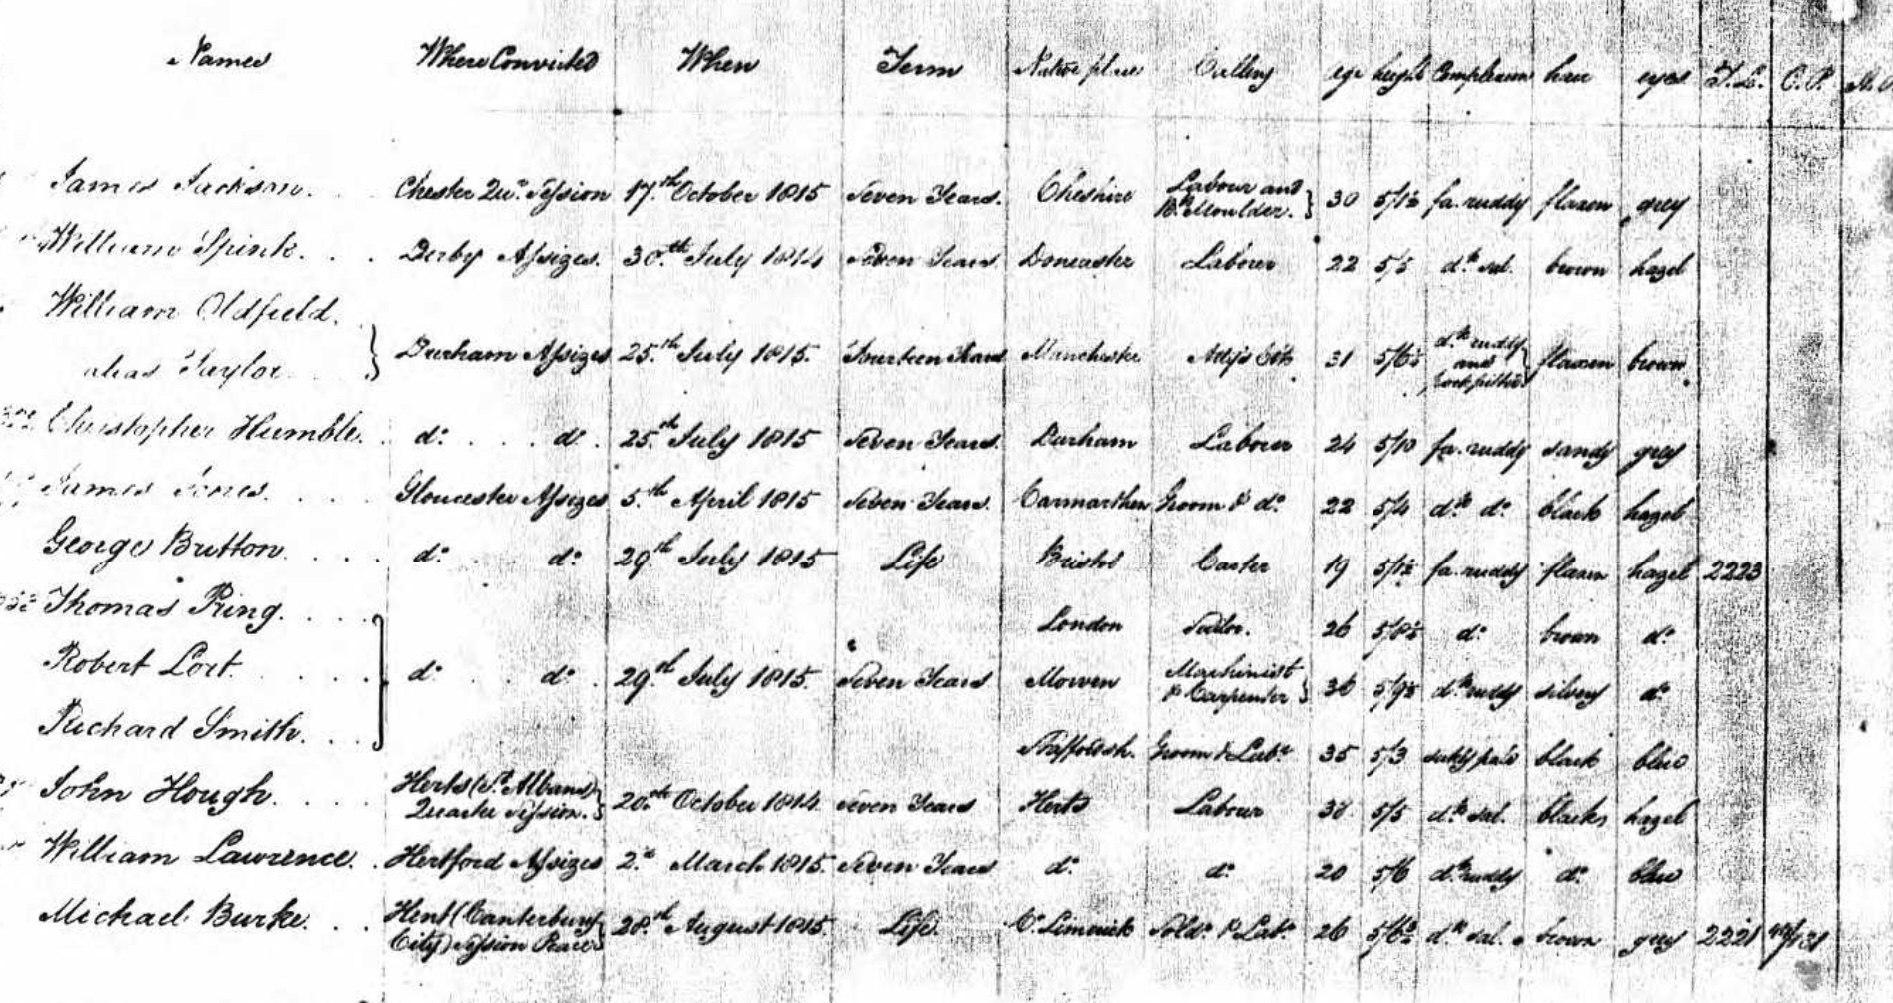 Names Where Convicted When Term Native place Calling age height Complexion hair eyes T.L. C.P.
James Jackson. Chester Qur. Session 17th October 1815 Seven Years. Cheshire Labour and Bk. Moulder. } 30 fa. ruddy flaxen grey
William Spink. Derby Assizes. 30th July 1814 Seven Years Doncaster Labour 22 5/5 dk. sal. brown hazel
William Oldfield.
alias Taylor } Durham Assizes 25th July 1815. Fourteen Years Manchester 31 dk. ruddy and } flaxen brown
Christopher Humble. do. do. 25th July 1815 Seven Years. Durham Labour 24 5/10 fa. ruddy sandy grey
James Jones. Gloucester Assizes 5th April 1815 Seven Years. Carmarthen Groom & do. 22 5/4 dk. do. black hazel
George Britton. do. do. 29th July 1815 Life Bristol Carter 19 fa. ruddy flaxen hazel 2223
Thomas Pring. London 26 do. brown do.
Robert Lort. do. do. 29th July 1815. Seven Years Machinist & Carpenter } 36 dk. ruddy silvery do.
Richard Smith. Staffordsh. Groom & Labr. 35 5/3 pale black blue
John Hough. Herts (St. Albans) Quarter Session. } 20th October 1814. Seven Years Herts Labour 38 5/5 dk. sal. black hazel
William Lawrence. Hertford Assizes 2d. March 1815. Seven Years do. do. 20 5/6 dk. ruddy do. blue
Michael Burke. Kent (Canterbury City) Session Peace } 28th August 1815. Life. Co. Limerick Soldr. & Labr. 26 dk. sal. brown grey 2221